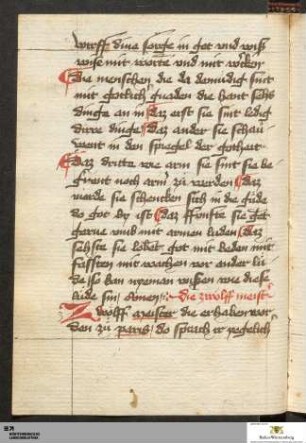 wirff dine sorge in got vnd wiß
wise mit worten vnd mit wercken
Die menschen die da demudig sint
mit gotlich gnaden die hant sehs
dinge an in Daz erst sie sint ledig
dirre dinge Daz ander sie schau
went in den spiegel der gotheit
Daz dritte wie arm sie sint sie be
gerent noch arm zu werden Daz
vierde sie schencken sich in die
do got by ist Daz fünffte sie
gerne vnd mit armen liden Daz
sehste sie lobent got mit beden mit
fassten mit wachen vor ander lu
de so kan nyeman wißen wie diese
lude sin Amen Die zwölff meist
Zwölff meister die erhaben wor
den zu paris do sprach er zegelich